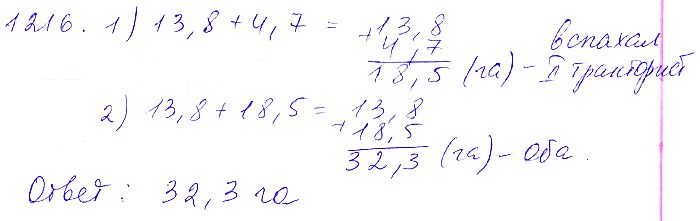 1216. 1) 13,8 + 4,7 = 13,8
+ 4,7
18,5 (га) – вспахал II тракторист
2) 13,8 + 18,5 = 13,8
+ 18,5
32,3 (га) – оба.
Ответ: 32,3 га